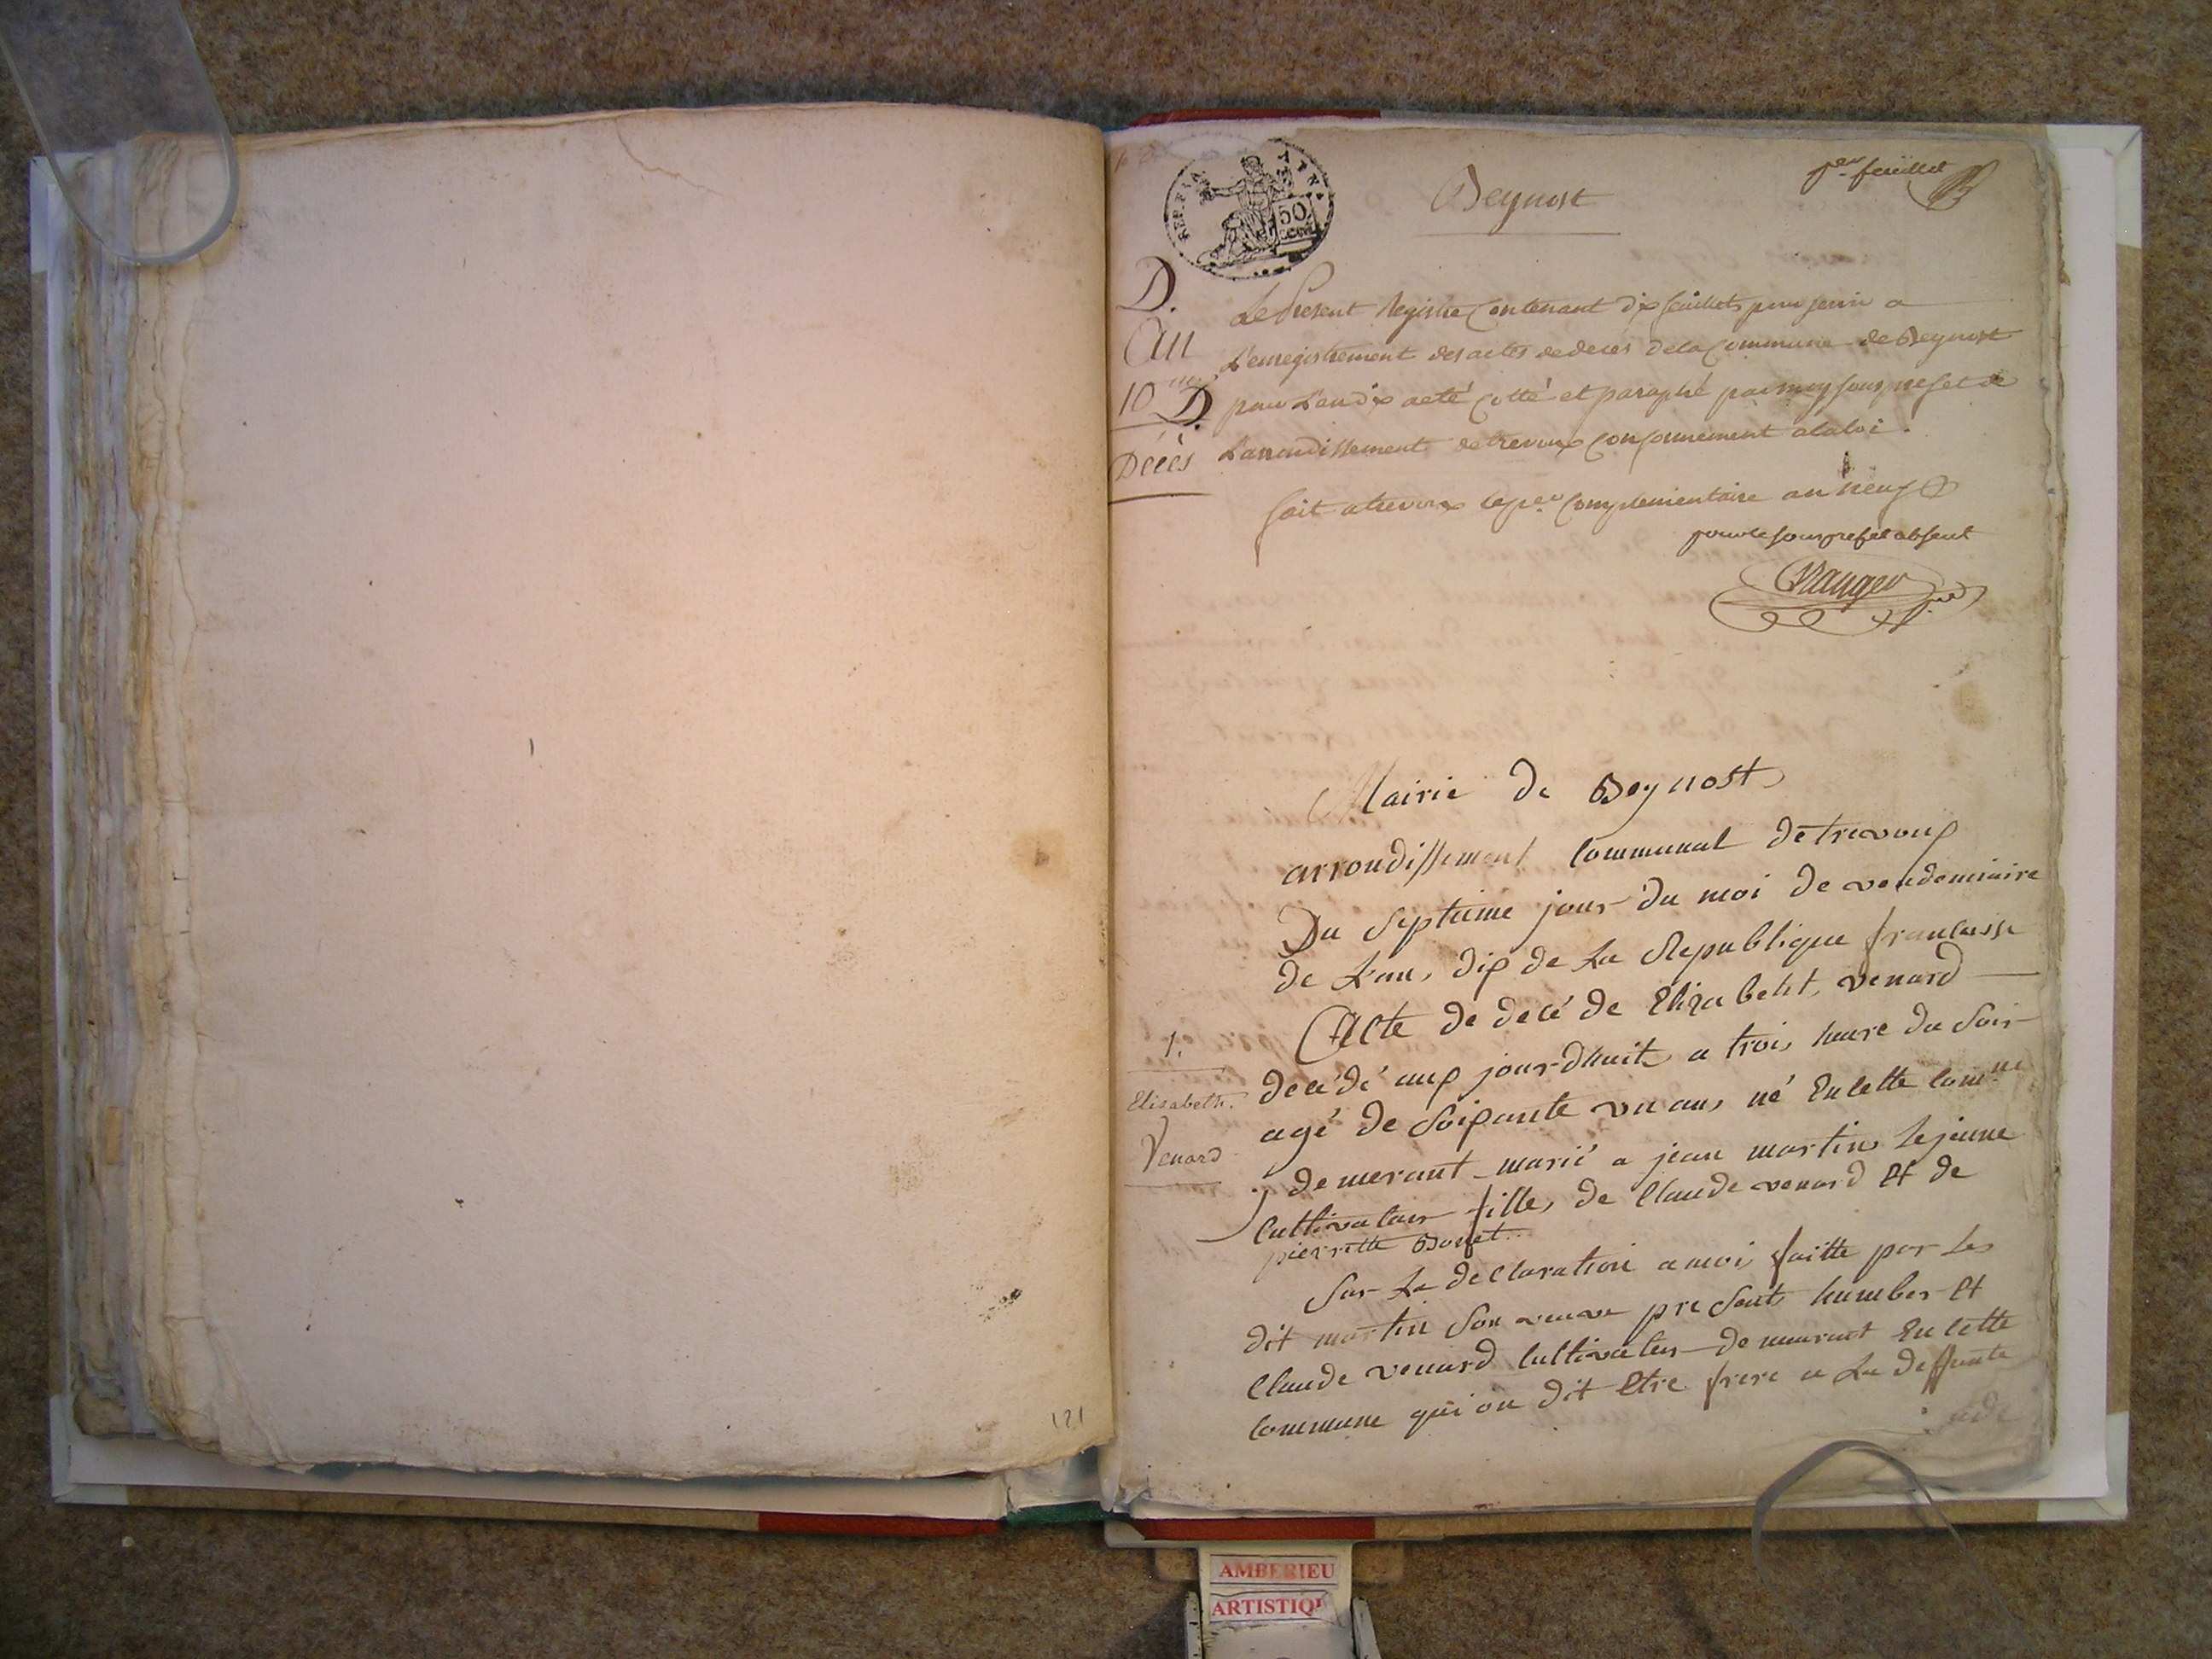 121
REP. FRA
50
CENT
Beynost
1er feuillet
D.
An
10
D.
Décès
Le Present Registre Contenant dix feuillets pour servir a
L'enregistrement des actes de deces de la Commune de Beynost
pour L'an dix a eté Cotté et paraphé par moy sous prefet de
L'arrondissement de trevoux Conformement a la loi.
fait a trevoux le per Complementaire an neuf
pour le sous prefet absent
Mairie de Beynost
arrondissement Communal de trevoux
Du Septieme jour du moi de vendemiaire
de L'an, dix de La Republique francaisse
Acte de decé de Elizabeht venard
decédé aux jour-dhuit a trois heure du Soir
agé de Soixante un ans né En cette Comne
y demerant marié a jean martin Le jeune
Cultivateur fille, de Claude venard Et de
pierrette
1.
Elisabeth.
Venard
Sur La declaration a moi faitte par Les
dit martin Son veuve present humber Et
Claude venard Cultivateur demeurant En cette
Commune qui on dit Etre frere a La deffunte
AMBERIEU
ARTISTIQ